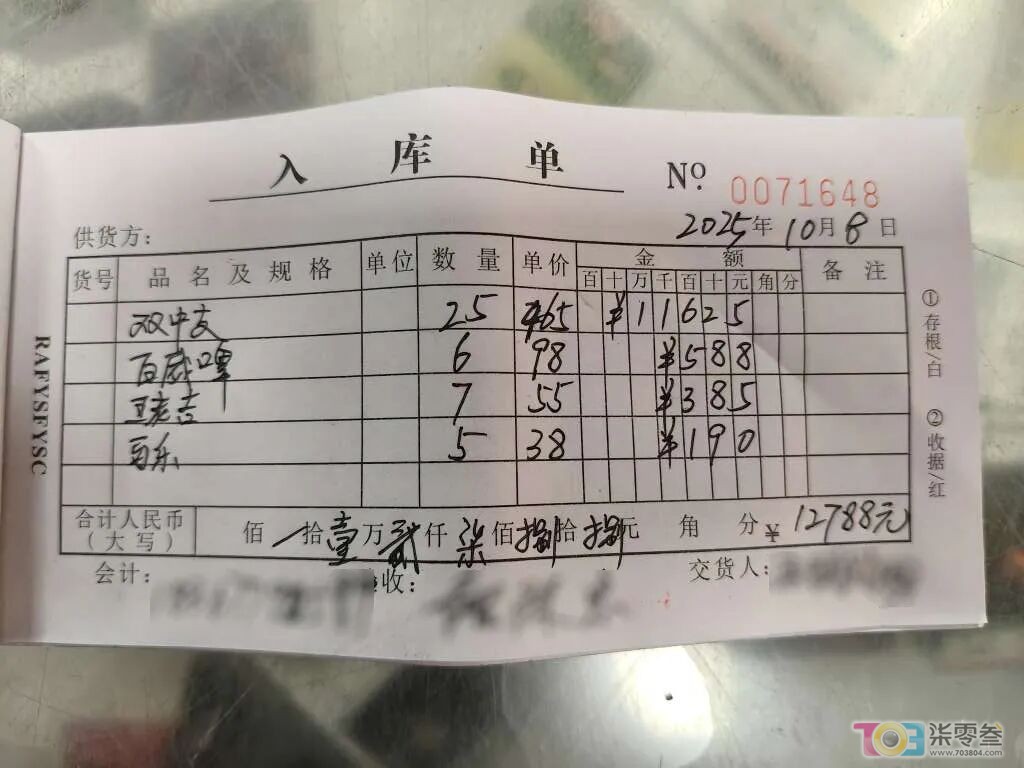 入库单 №. 0071648
供货方: 2025年10月8日
货号 品名及规格 单位 数量 单价 金额 备注
百 十 万 千 百 十 元 角 分
双中支 25 465 ¥11625
百威啤 6 98 ¥588
王老吉 7 55 ¥385
百乐 5 38 ¥190
合计人民币(大写) 佰 拾壹万贰仟柒佰捌拾捌元 角 分 ¥12788元
会计: 收: 交货人:
①存根/白 ②收据/红
RAFYSFYSC
703 柒零叁
www.703804.com